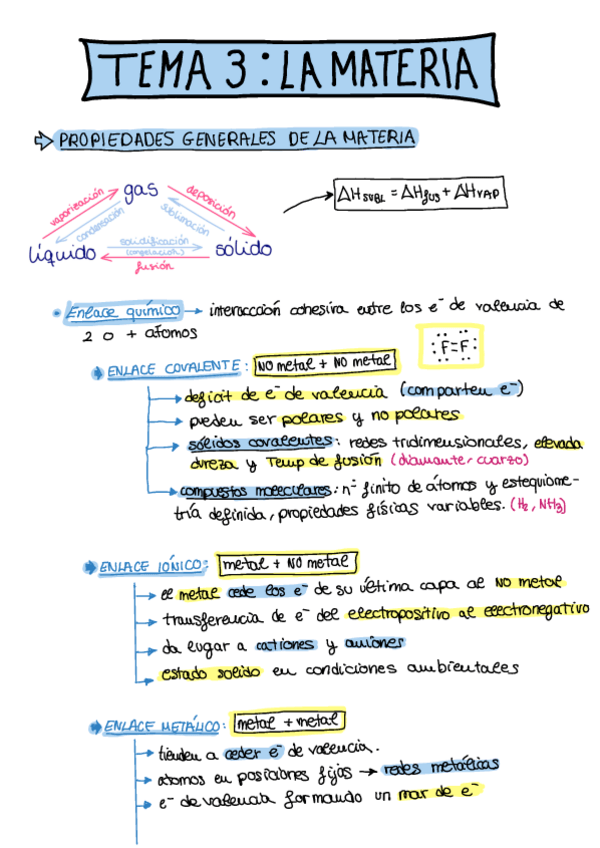 TEMA 3: LA MATERIA
PROPIEDADES GENERALES DE LA MATERIA
gas
vaporización
condensación
deposición
sublimación
ΔHSUBL = ΔHfus + ΔHVAP
líquido
solidificación
(congelación)
fusión
sólido
Enlace químico → interacción cohesiva entre los e⁻ de valencia de
2 o + átomos
:F=F:
ENLACE COVALENTE: NO metal + NO metal
deficit de e⁻ de valencia (comparten e⁻)
pueden ser polares y no polares
sólidos covalentes: redes tridimensionales, elevada
dureza y Temp de fusión (diamante, cuarzo)
compuestos moleculares: nº finito de átomos y estequiome-
tría definida, propiedades físicas variables. (H₂, NH₃)
ENLACE IÓNICO: metal + NO metal
el metal cede los e⁻ de su última capa al NO metal
transferencia de e⁻ del electropositivo al electronegativo
da lugar a cationes y aniones
estado solido en condiciones ambientales
ENLACE METÁLICO: metal + metal
tienden a ceder e⁻ de valencia.
atomos en posiciones fijas → redes metálicas
e⁻ de valencia formando un mar de e⁻